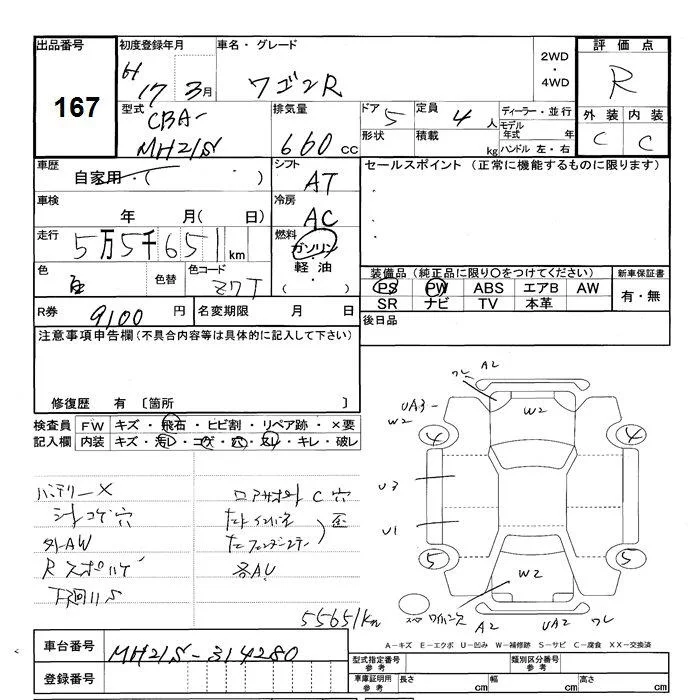 出品番号
167
初度登録年月
H 17 3月
車名・グレード
ワゴンR
2WD
・
4WD
評価点
R
外装 内装
C C
型式
CBA-
MH21S
排気量
660 cc
ドア
5
定員
4 人
形状
積載
kg
ディーラー・並行
モデル
年式 年
ハンドル 左・右
車歴
自家用・( )
シフト
AT
セールスポイント (正常に機能するものに限ります)
・
・
・
車検
年 月( 日)
冷房
AC
走行
5万5千651 km
燃料
ガソリン
・
軽油
・
( )
色
色替
色コード
Z7T
装備品 (純正品に限り○をつけてください)
新車保証書
PS PW ABS エアB AW
SR ナビ TV 本革
有・無
R券
9100 円
名変期限 月 日
後日品
注意事項申告欄(不具合内容等は具体的に記入して下さい)
修復歴 有 〔箇所 〕
検査員
記入欄
FW キズ・飛石・ヒビ割・リペア跡・×要
内装 キズ・汚レ・コゲ・穴・スレ・キレ・破レ
バッテリー×
シートコゲ穴
外AW
Rスポイラーハゲ
下廻りS
C穴
各AU
55651km
ワレ A2
W2
UA3-
W2
4
4
U3
U1
5
5
W2
A2 UA2 ワレ
A-キズ E-エクボ U-凹み W-補修跡 S-サビ C-腐食 XX-交換済
車台番号
MH21S-314280
登録番号
型式指定番号
参考
類別区分番号
参考
車庫証明用
参考
長さ cm
幅 cm
高さ cm